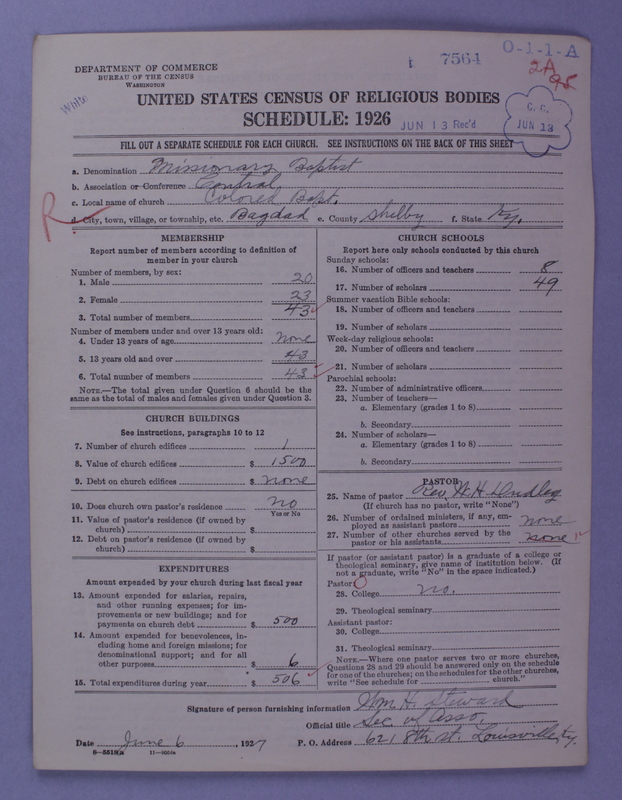 7564
O-1-1-A
2A
95
DEPARTMENT OF COMMERCE
BUREAU OF THE CENSUS
WASHINGTON
White
UNITED STATES CENSUS OF RELIGIOUS BODIES
SCHEDULE: 1926
JUN 13 Rec'd
C. C.
JUN 13
FILL OUT A SEPARATE SCHEDULE FOR EACH CHURCH. SEE INSTRUCTIONS ON THE BACK OF THIS SHEET
a. Denomination Missionary Baptist
b. Association or Conference Central
c. Local name of church Colored Bapt.
R
d. City, town, village, or township, etc. Bagdad e. County Shelby f. State Ky.
MEMBERSHIP
Report number of members according to definition of
member in your church
Number of members, by sex:
1. Male 20
2. Female 23
3. Total number of members 43
Number of members under and over 13 years old:
4. Under 13 years of age none
5. 13 years old and over 43
6. Total number of members 43
NOTE.—The total given under Question 6 should be the
same as the total of males and females given under Question 3.
CHURCH BUILDINGS
See instructions, paragraphs 10 to 12
7. Number of church edifices 1
8. Value of church edifices $ 1500
9. Debt on church edifices $ none
10. Does church own pastor's residence no
Yes or No
11. Value of pastor's residence (if owned by
church) $
12. Debt on pastor's residence (if owned by
church) $
EXPENDITURES
Amount expended by your church during last fiscal year
13. Amount expended for salaries, repairs,
and other running expenses; for im-
provements or new buildings; and for
payments on church debt $ 500
14. Amount expended for benevolences, in-
cluding home and foreign missions; for
denominational support; and for all
other purposes $ 6
15. Total expenditures during year $ 506
CHURCH SCHOOLS
Report here only schools conducted by this church
Sunday schools:
16. Number of officers and teachers 8
17. Number of scholars 49
Summer vacation Bible schools:
18. Number of officers and teachers
19. Number of scholars
Week-day religious schools:
20. Number of officers and teachers
21. Number of scholars
Parochial schools:
22. Number of administrative officers
23. Number of teachers—
a. Elementary (grades 1 to 8)
b. Secondary
24. Number of scholars—
a. Elementary (grades 1 to 8)
b. Secondary
PASTOR
25. Name of pastor Rev. W. H. Dudley
(If church has no pastor, write "None")
26. Number of ordained ministers, if any, em-
ployed as assistant pastors none
27. Number of other churches served by the
pastor or his assistants none
If pastor (or assistant pastor) is a graduate of a college or
theological seminary, give name of institution below. (If
not a graduate, write "No" in the space indicated.)
Pastor:
28. College no.
29. Theological seminary
Assistant pastor:
30. College
31. Theological seminary
NOTE.—Where one pastor serves two or more churches,
Questions 28 and 29 should be answered only on the schedule
for one of the churches; on the schedules for the other churches,
write "See schedule for church."
Signature of person furnishing information Wm. H. Steward
Official title Sec. of Asso.
Date June 6, 1927 P. O. Address 621 8th st. Louisville Ky.